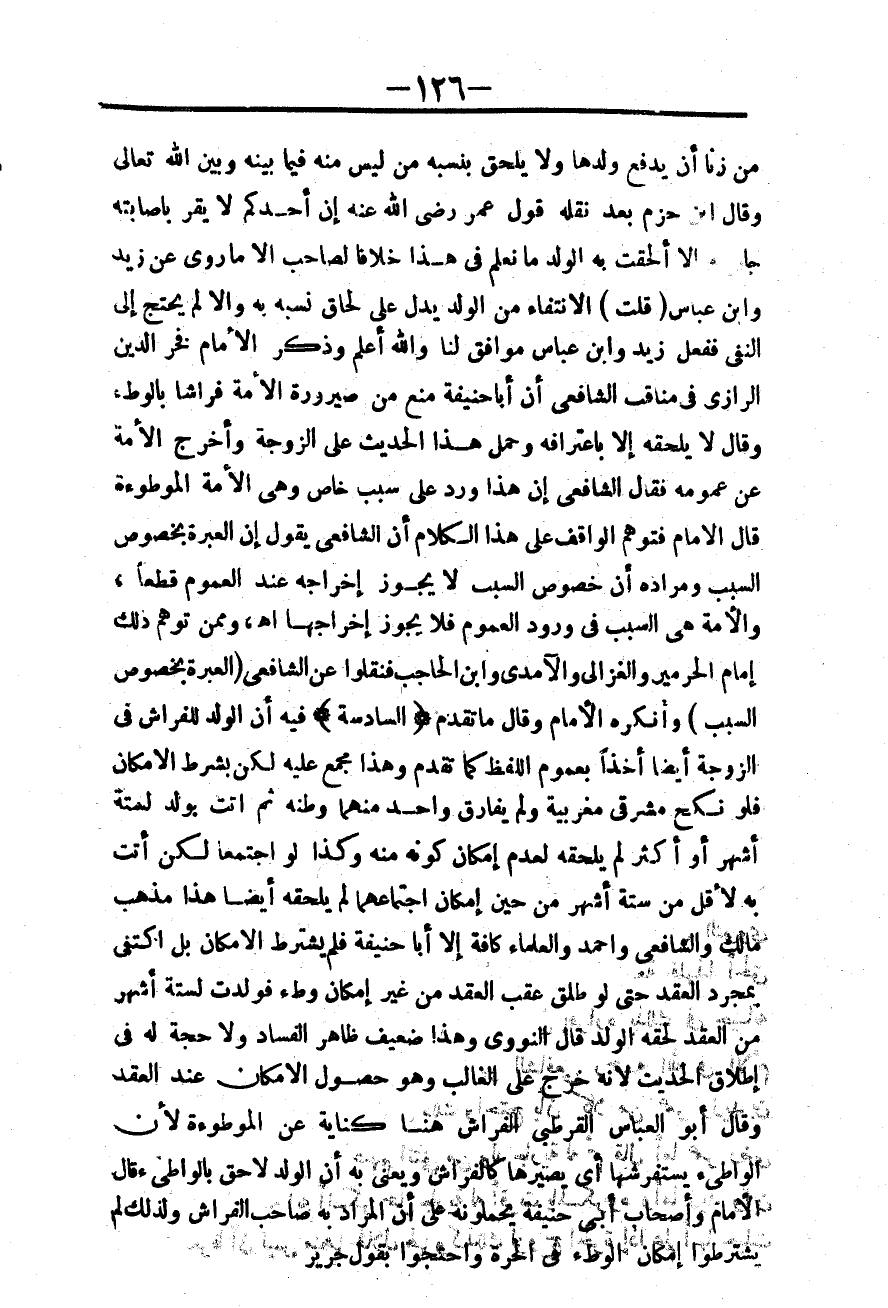 -١٢٦-
من زنا أن يدفع ولدها ولا يلحق بنسبه من ليس منه فيما بينه وبين الله تعالى
وقال ابن حزم بعد نقله قول عمر رضى الله عنه إن أحدكم لا يقر باصابته
الا ألحقت به الولد مانعلم فى هذا خلافا لصاحب الا ماروى عن زيد
وابن عباس ( قلت ) الانتفاء من الولد يدل على لحاق نسبه به والا لم يحتج إلى
النفى ففعل زيد وابن عباس موافق لنا والله أعلم وذكر الأمام فخر الدين
الرازى فى مناقب الشافعى أن أباحنيفة منع من صيرورة الأمة فراشا بالوطء
وقال لا يلحقه إلا باعترافه وحمل هذا الحديث على الزوجة وأخرج الأمة
عن عمومه فقال الشافعى إن هذا ورد على سبب خاص وهى الأمة الموطوءة
قال الامام فتوهم الواقف على هذا الكلام أن الشافعى يقول إن العبرة بخصوص
السبب ومراده أن خصوص السبب لا يجوز إخراجه عند العموم قطعاً ،
والأمة هى السبب فى ورود العموم فلا يجوز إخراجها اه ، وممن توهم ذلك
إمام الحرمين والغزالى والآمدى وابن الحاجب فنقلوا عن الشافعى (العبرة بخصوص
السبب ) وأنكره الأمام وقال ماتقدم ﴿ السادسة ﴾ فيه أن الولد للفراش فى
الزوجة أيضا أخذاً بعموم اللفظ كما تقدم وهذا مجمع عليه لكن بشرط الامكان
فلو نكح مشرقى مغربية ولم يفارق واحد منهما وطنه ثم اتت بولد لستة
أشهر أو أكثر لم يلحقه لعدم إمكان كونه منه وكذا لو اجتمعا لكن أتت
به لأقل من ستة أشهر من حين إمكان اجتماعهما لم يلحقه أيضا هذا مذهب
مالك والشافعى واحمد والعلماء كافة إلا أبا حنيفة فلم يشترط الامكان بل اكتفى
بمجرد العقد حتى لو طلق عقب العقد من غير إمكان وطء فولدت لستة أشهر
من العقد لحقه الولد قال النووى وهذا ضعيف ظاهر الفساد ولا حجة له فى
إطلاق الحديث لأنه خرج على الغالب وهو حصول الامكان عند العقد
وقال أبو العباس القرطبى الفراش هنا كناية عن الموطوءة لأن
الواطىء يستفرشها أي يصيرها كالفراش ويعنى به أن الولد لاحق بالواطىء قال
الأمام وأصحاب أبى حنيفة يحملونه على أن المراد به صاحب الفراش ولذلك لم
يشترطوا إمكان الوطء فى الحرة واحتجوا بقول جرير